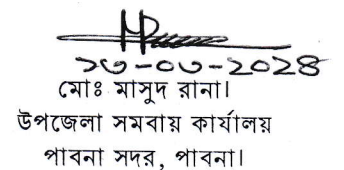 ২৩-০৩-২০২৪
মোঃ মাসুদ রানা।
উপজেলা সমবায় কার্যালয়
পাবনা সদর, পাবনা।